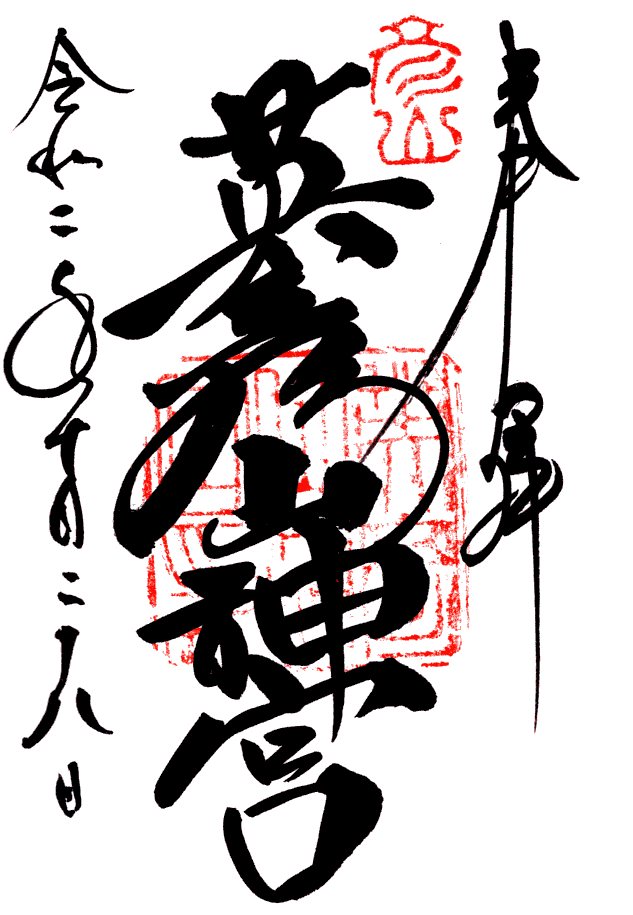 奉拝
英彦山神宮
令和二年十月二十八日